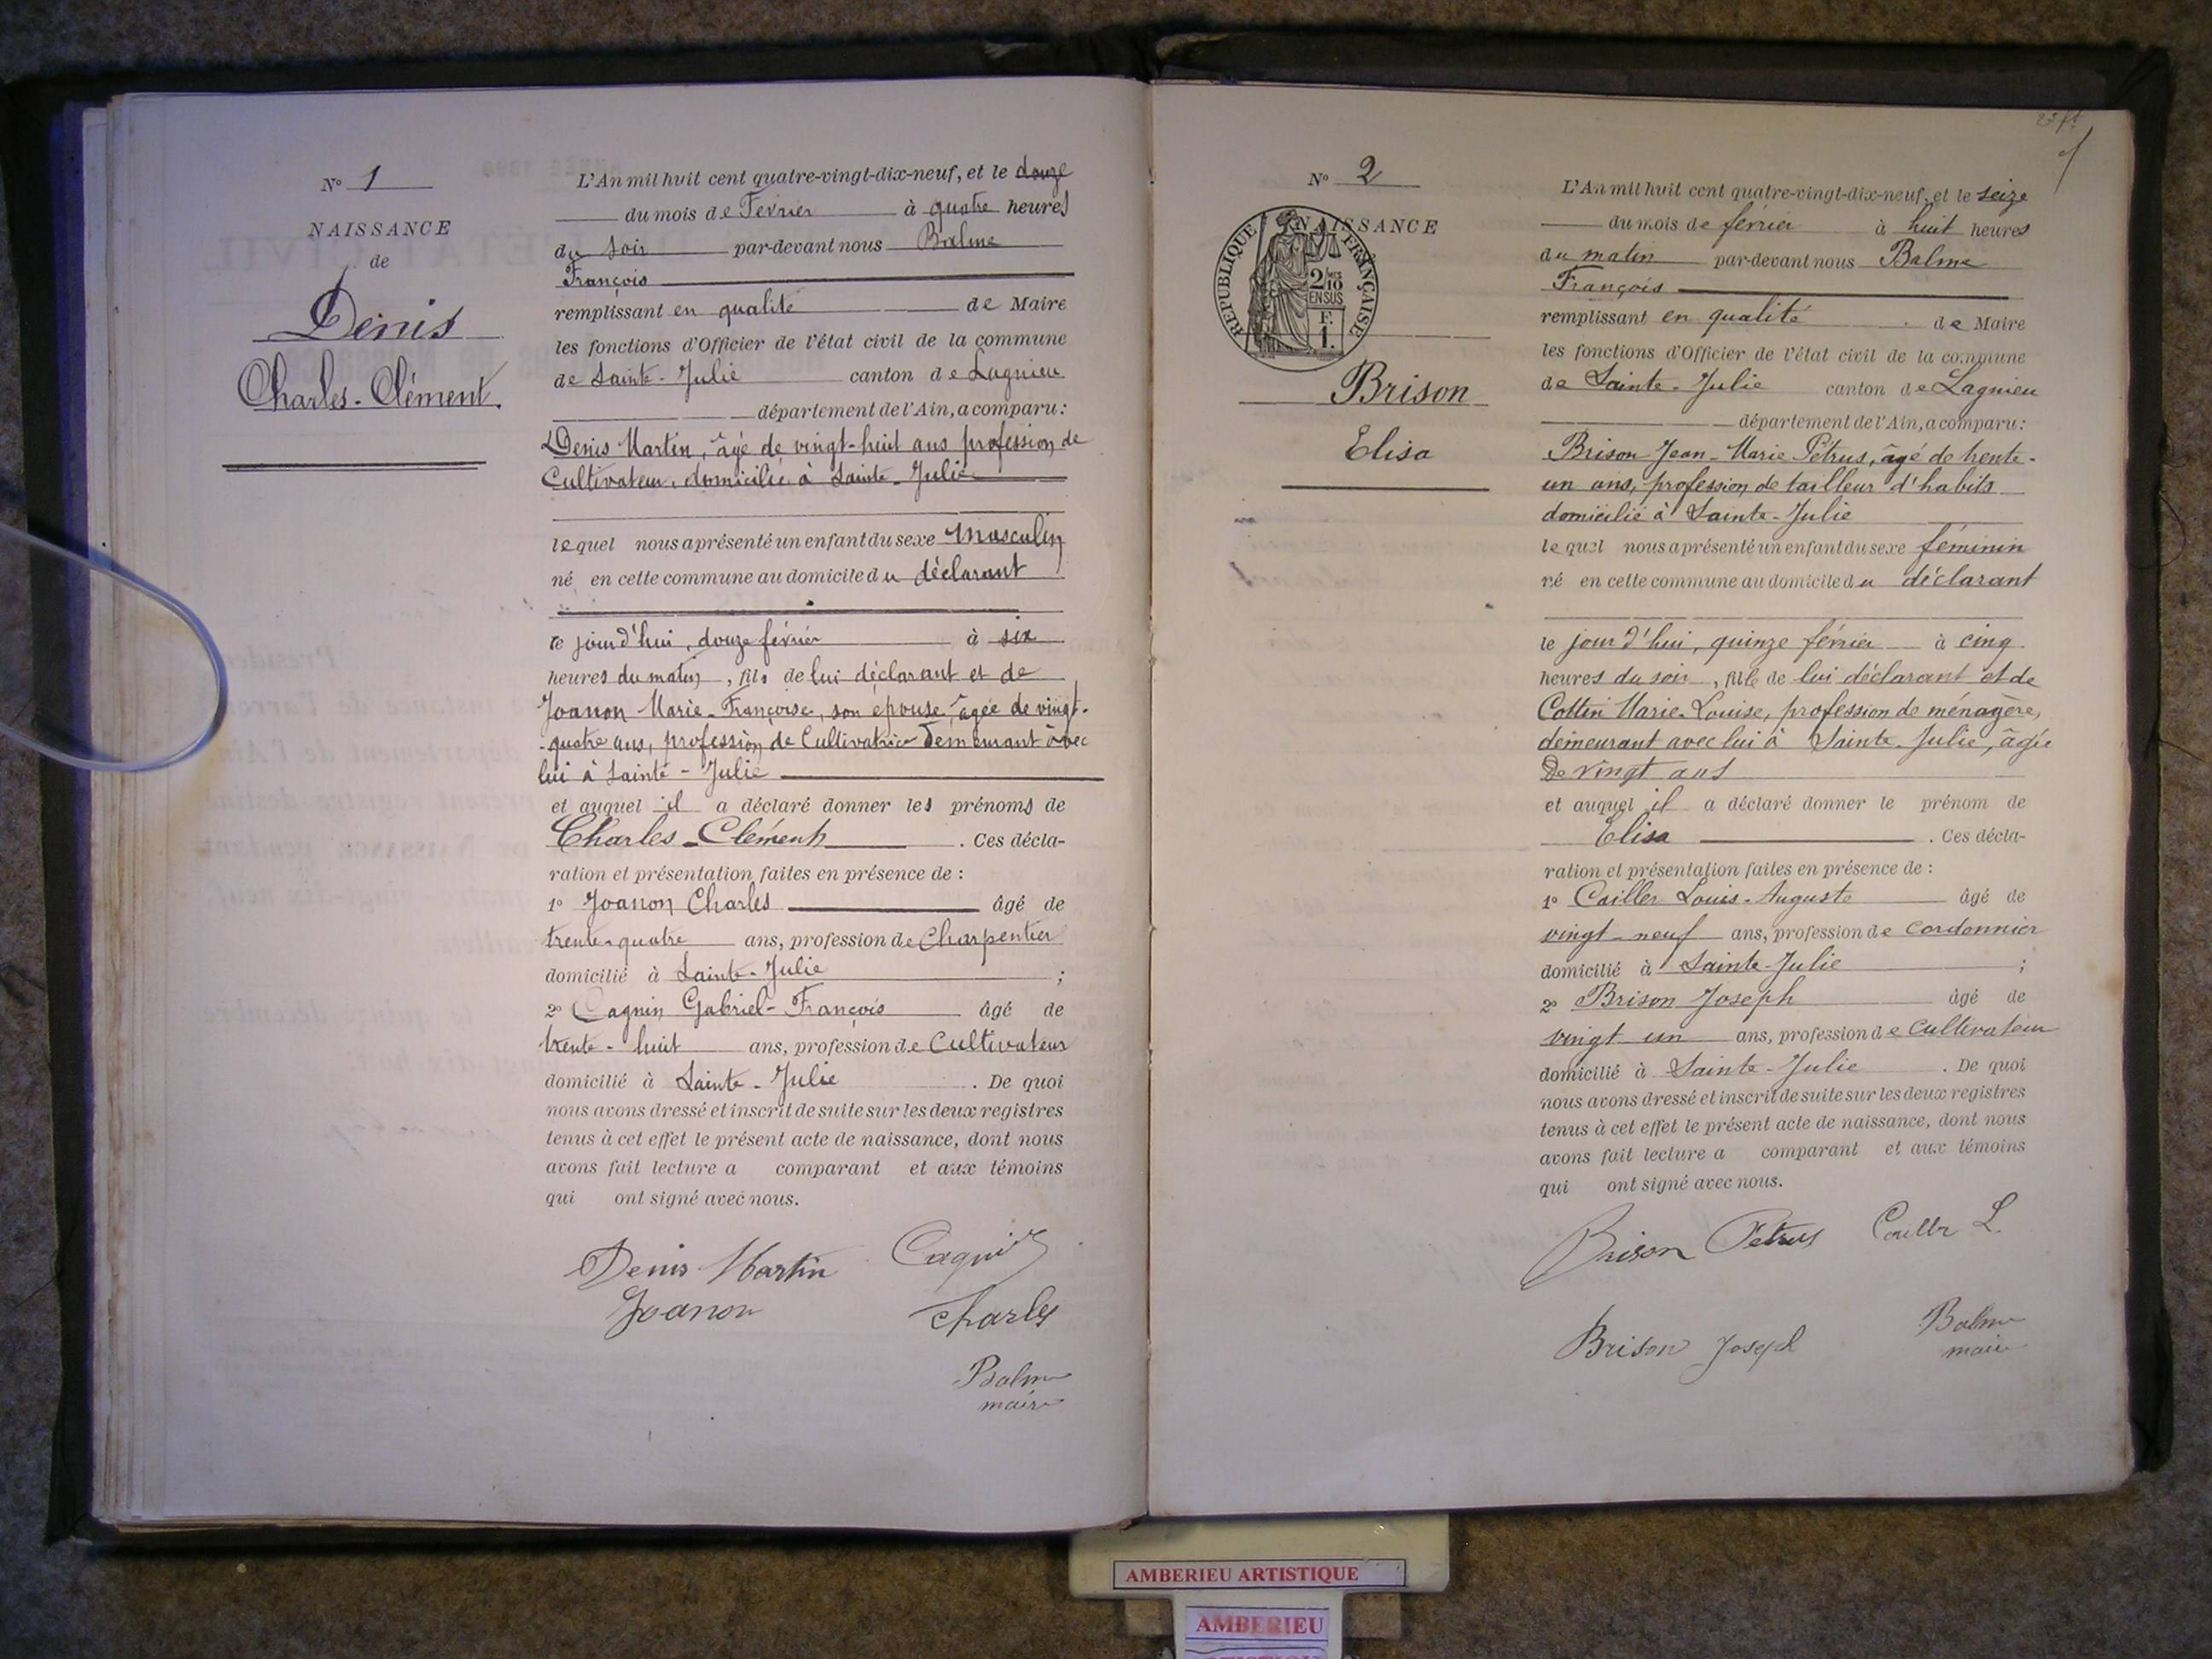 N° 1
NAISSANCE
de
Denis
Charles-Clément
L'An mil huit cent quatre-vingt-dix-neuf, et le douze
du mois de Février à quatre heures
du soir par-devant nous Balme
François
remplissant en qualité de Maire
les fonctions d'Officier de l'état civil de la commune
de Sainte-Julie canton de Lagnieu
département de l'Ain, a comparu :
Denis Martin, âgé de vingt-huit ans profession de
Cultivateur, domicilié à Sainte-Julie
lequel nous a présenté un enfant du sexe masculin
né en cette commune au domicile du déclarant
ce jourd'hui, douze février à six
heures du matin, fils de lui déclarant et de
Joanon Marie-Françoise, son épouse, âgée de vingt-
-quatre ans, profession de Cultivatrice demeurant avec
lui à Sainte-Julie
et auquel il a déclaré donner les prénoms de
Charles-Clément. Ces décla-
ration et présentation faites en présence de :
1° Joanon Charles âgé de
trente-quatre ans, profession de Charpentier
domicilié à Sainte-Julie ;
2° Cagnin Gabriel-François âgé de
trente-huit ans, profession de Cultivateur
domicilié à Sainte-Julie. De quoi
nous avons dressé et inscrit de suite sur les deux registres
tenus à cet effet le présent acte de naissance, dont nous
avons fait lecture a comparant et aux témoins
qui ont signé avec nous.
Denis Martin Cagnin
Joanon Charles
Balme
maire
N° 2
NAISSANCE
RÉPUBLIQUE FRANÇAISE
2/10
EN SUS
F.
1.
Brison
Elisa
L'An mil huit cent quatre-vingt-dix-neuf, et le seize
du mois de février à huit heures
du matin par-devant nous Balme
François
remplissant en qualité de Maire
les fonctions d'Officier de l'état civil de la commune
de Sainte-Julie canton de Lagnieu
département de l'Ain, a comparu :
Brison Jean-Marie Pétrus, âgé de trente-
un ans, profession de tailleur d'habits
domicilié à Sainte-Julie
lequel nous a présenté un enfant du sexe féminin
né en cette commune au domicile du déclarant
le jour d'hui, quinze février à cinq
heures du soir, fille de lui déclarant et de
Cottin Marie-Louise, profession de ménagère,
demeurant avec lui à Sainte-Julie, âgée
de vingt ans
et auquel il a déclaré donner le prénom de
Elisa. Ces décla-
ration et présentation faites en présence de :
1° Cailler Louis-Auguste âgé de
vingt-neuf ans, profession de cordonnier
domicilié à Sainte-Julie ;
2° Brison Joseph âgé de
vingt un ans, profession de cultivateur
domicilié à Sainte-Julie. De quoi
nous avons dressé et inscrit de suite sur les deux registres
tenus à cet effet le présent acte de naissance, dont nous
avons fait lecture a comparant et aux témoins
qui ont signé avec nous.
Brison Petrus Cailler L.
Brison Joseph Balme
maire
AMBERIEU ARTISTIQUE
AMBERIEU